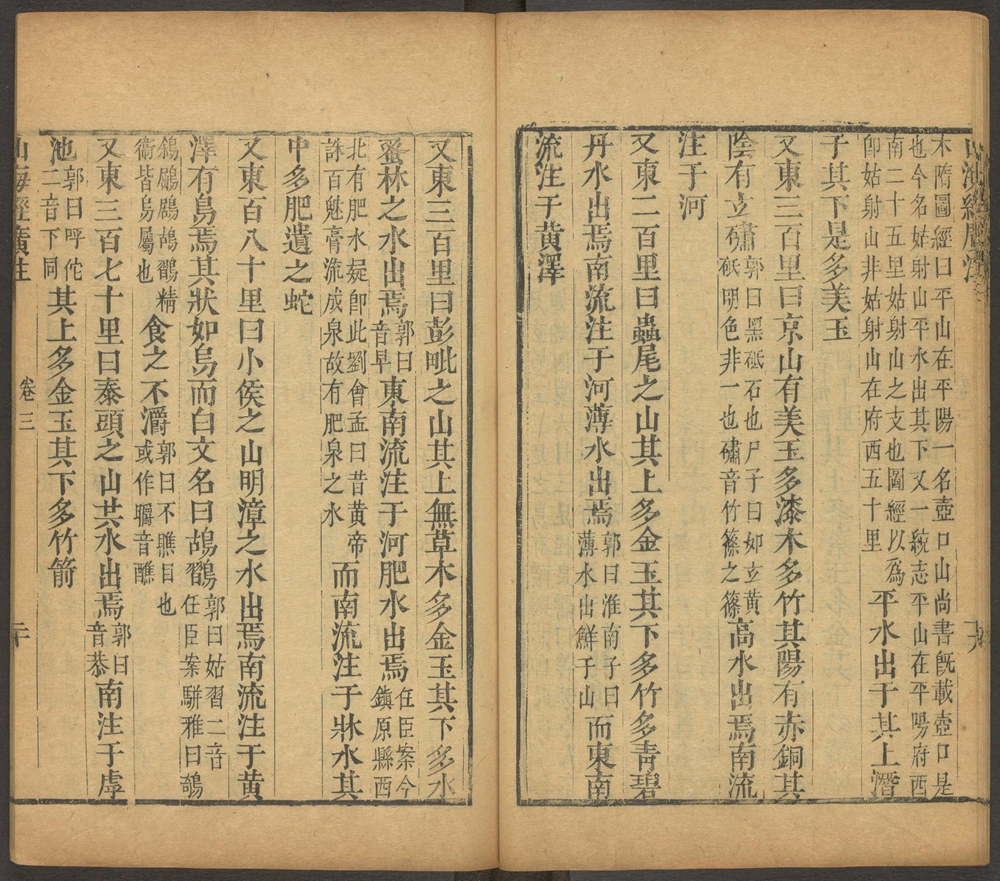 木隋圖經曰平山在平陽一名壺口山尚書旣載壺口是
也今名姑射山平水出其下又一統志平山在平陽府西
南二十五里姑射山之支也圖經以爲
卽姑射山非姑射山在府西五十里
平水出于其上潛
子其下是多美玉
又東三百里曰京山有美玉多漆木多竹其陽有赤銅其
陰有玄䃤
郭曰黑砥石也尸子曰加玄黃
砥明色非一也䃤音竹篠之篠
高水出焉南流
注于河
又東二百里曰蟲尾之山其上多金玉其下多竹多靑碧
丹水出焉南流注于河薄水出焉
郭曰淮南子曰
薄水出鮮于山
而東南
流注于黃澤
又東三百里曰彭毗之山其上無草木多金玉其下多水
蚤林之水出焉
郭曰
音早
東南流注于河肥水出焉
任臣案今
鎭原縣西
北有肥水疑卽此劉會孟曰昔黃帝
誅百魅膏流成泉故有肥泉之水
而南流注于牀水其
中多肥遺之蛇
又東百八十里曰小侯之山明漳之水出焉南流注于黃
澤有鳥焉其狀如烏而白文名曰鴣鸐
郭曰姑習二音
任臣案駢雅曰鴝
鵒鸓鷉鴣鸐精
衛皆鳥屬也
食之不灂
郭曰不瞧目也
或作䁨音醮
又東三百七十里曰泰頭之山共水出焉
郭曰
音恭
南注于虖
池
郭曰呼佗
二音下同
其上多金玉其下多竹箭
山海經廣注
卷三
二十